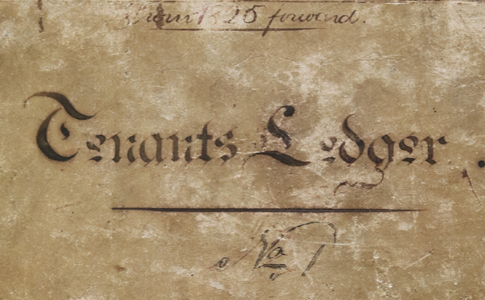 From 1825 forward.
Tenants Ledger.
No 1